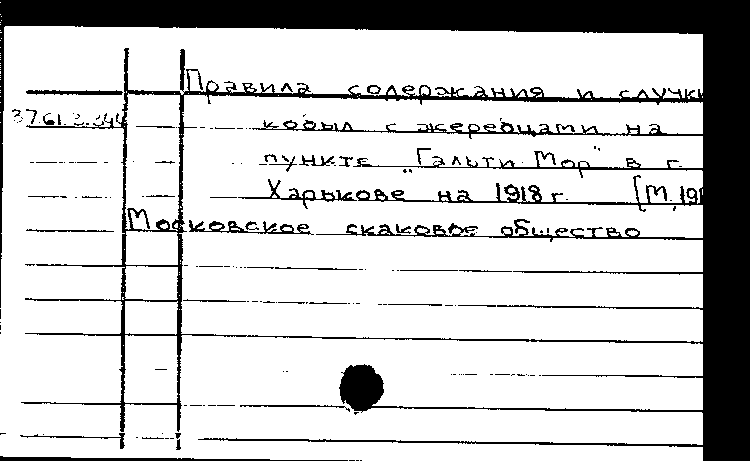 Правила содержания и случки
37.61.3.344 кобыл с жеребцами на
пункте „Гальти Мор" в г.
Харькове на 1918 г. [М, 191
Московское скаковое общество